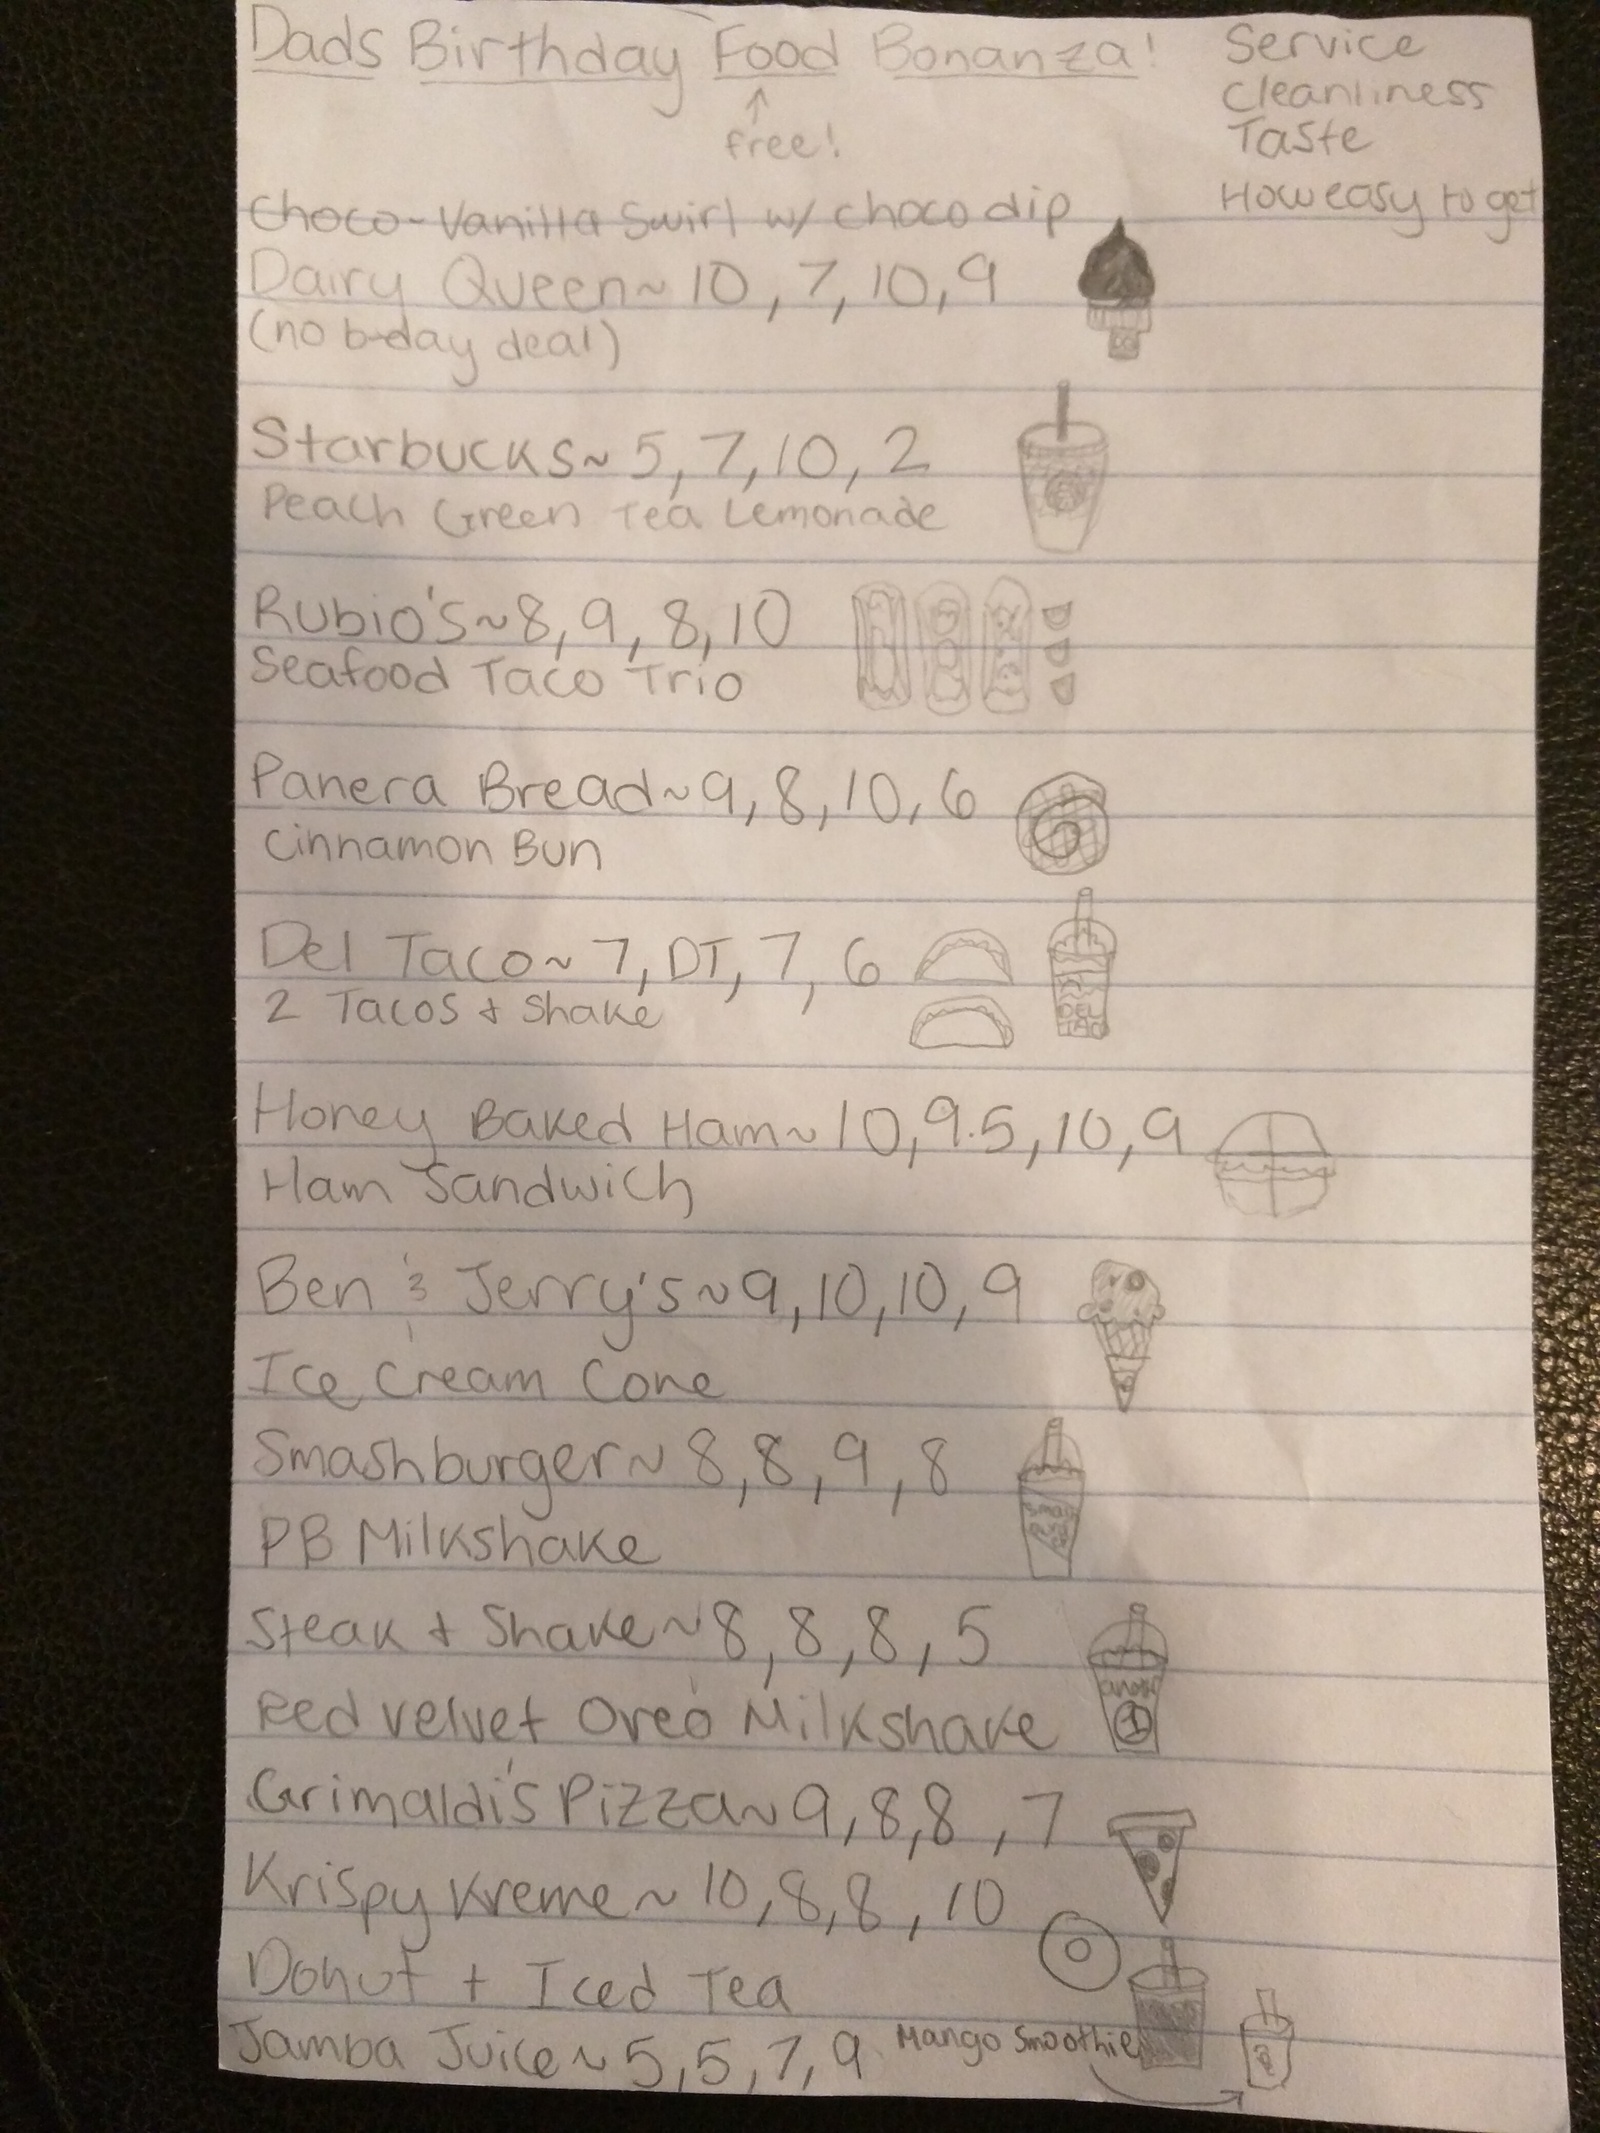 Dads Birthday Food Bonanza!
↑
free!
Service
Cleanliness
Taste
How easy to get
Choco-Vanilla Swirl w/ choco dip
Dairy Queen~ 10, 7, 10, 9
(no b-day deal)
DQ
Starbucks~ 5, 7, 10, 2
Peach Green Tea Lemonade
Rubio's~8, 9, 8, 10
Seafood Taco Trio
Panera Bread~9, 8, 10, 6
Cinnamon Bun
Del Taco~ 7, DT, 7, 6
2 Tacos + Shake
DEL
TACO
Honey Baked Ham~ 10, 9.5, 10, 9
Ham Sandwich
Ben & Jerry's~9, 10, 10, 9
Ice Cream Cone
Smashburger~ 8, 8, 9, 8
PB Milkshake
Steak + Shake~8, 8, 8, 5
Red Velvet Oreo Milkshake
Grimaldi's Pizza~ 9, 8, 8, 7
Krispy Kreme~ 10, 8, 8, 10
Donut + Iced Tea
Jamba Juice~ 5, 5, 7, 9 Mango Smoothie